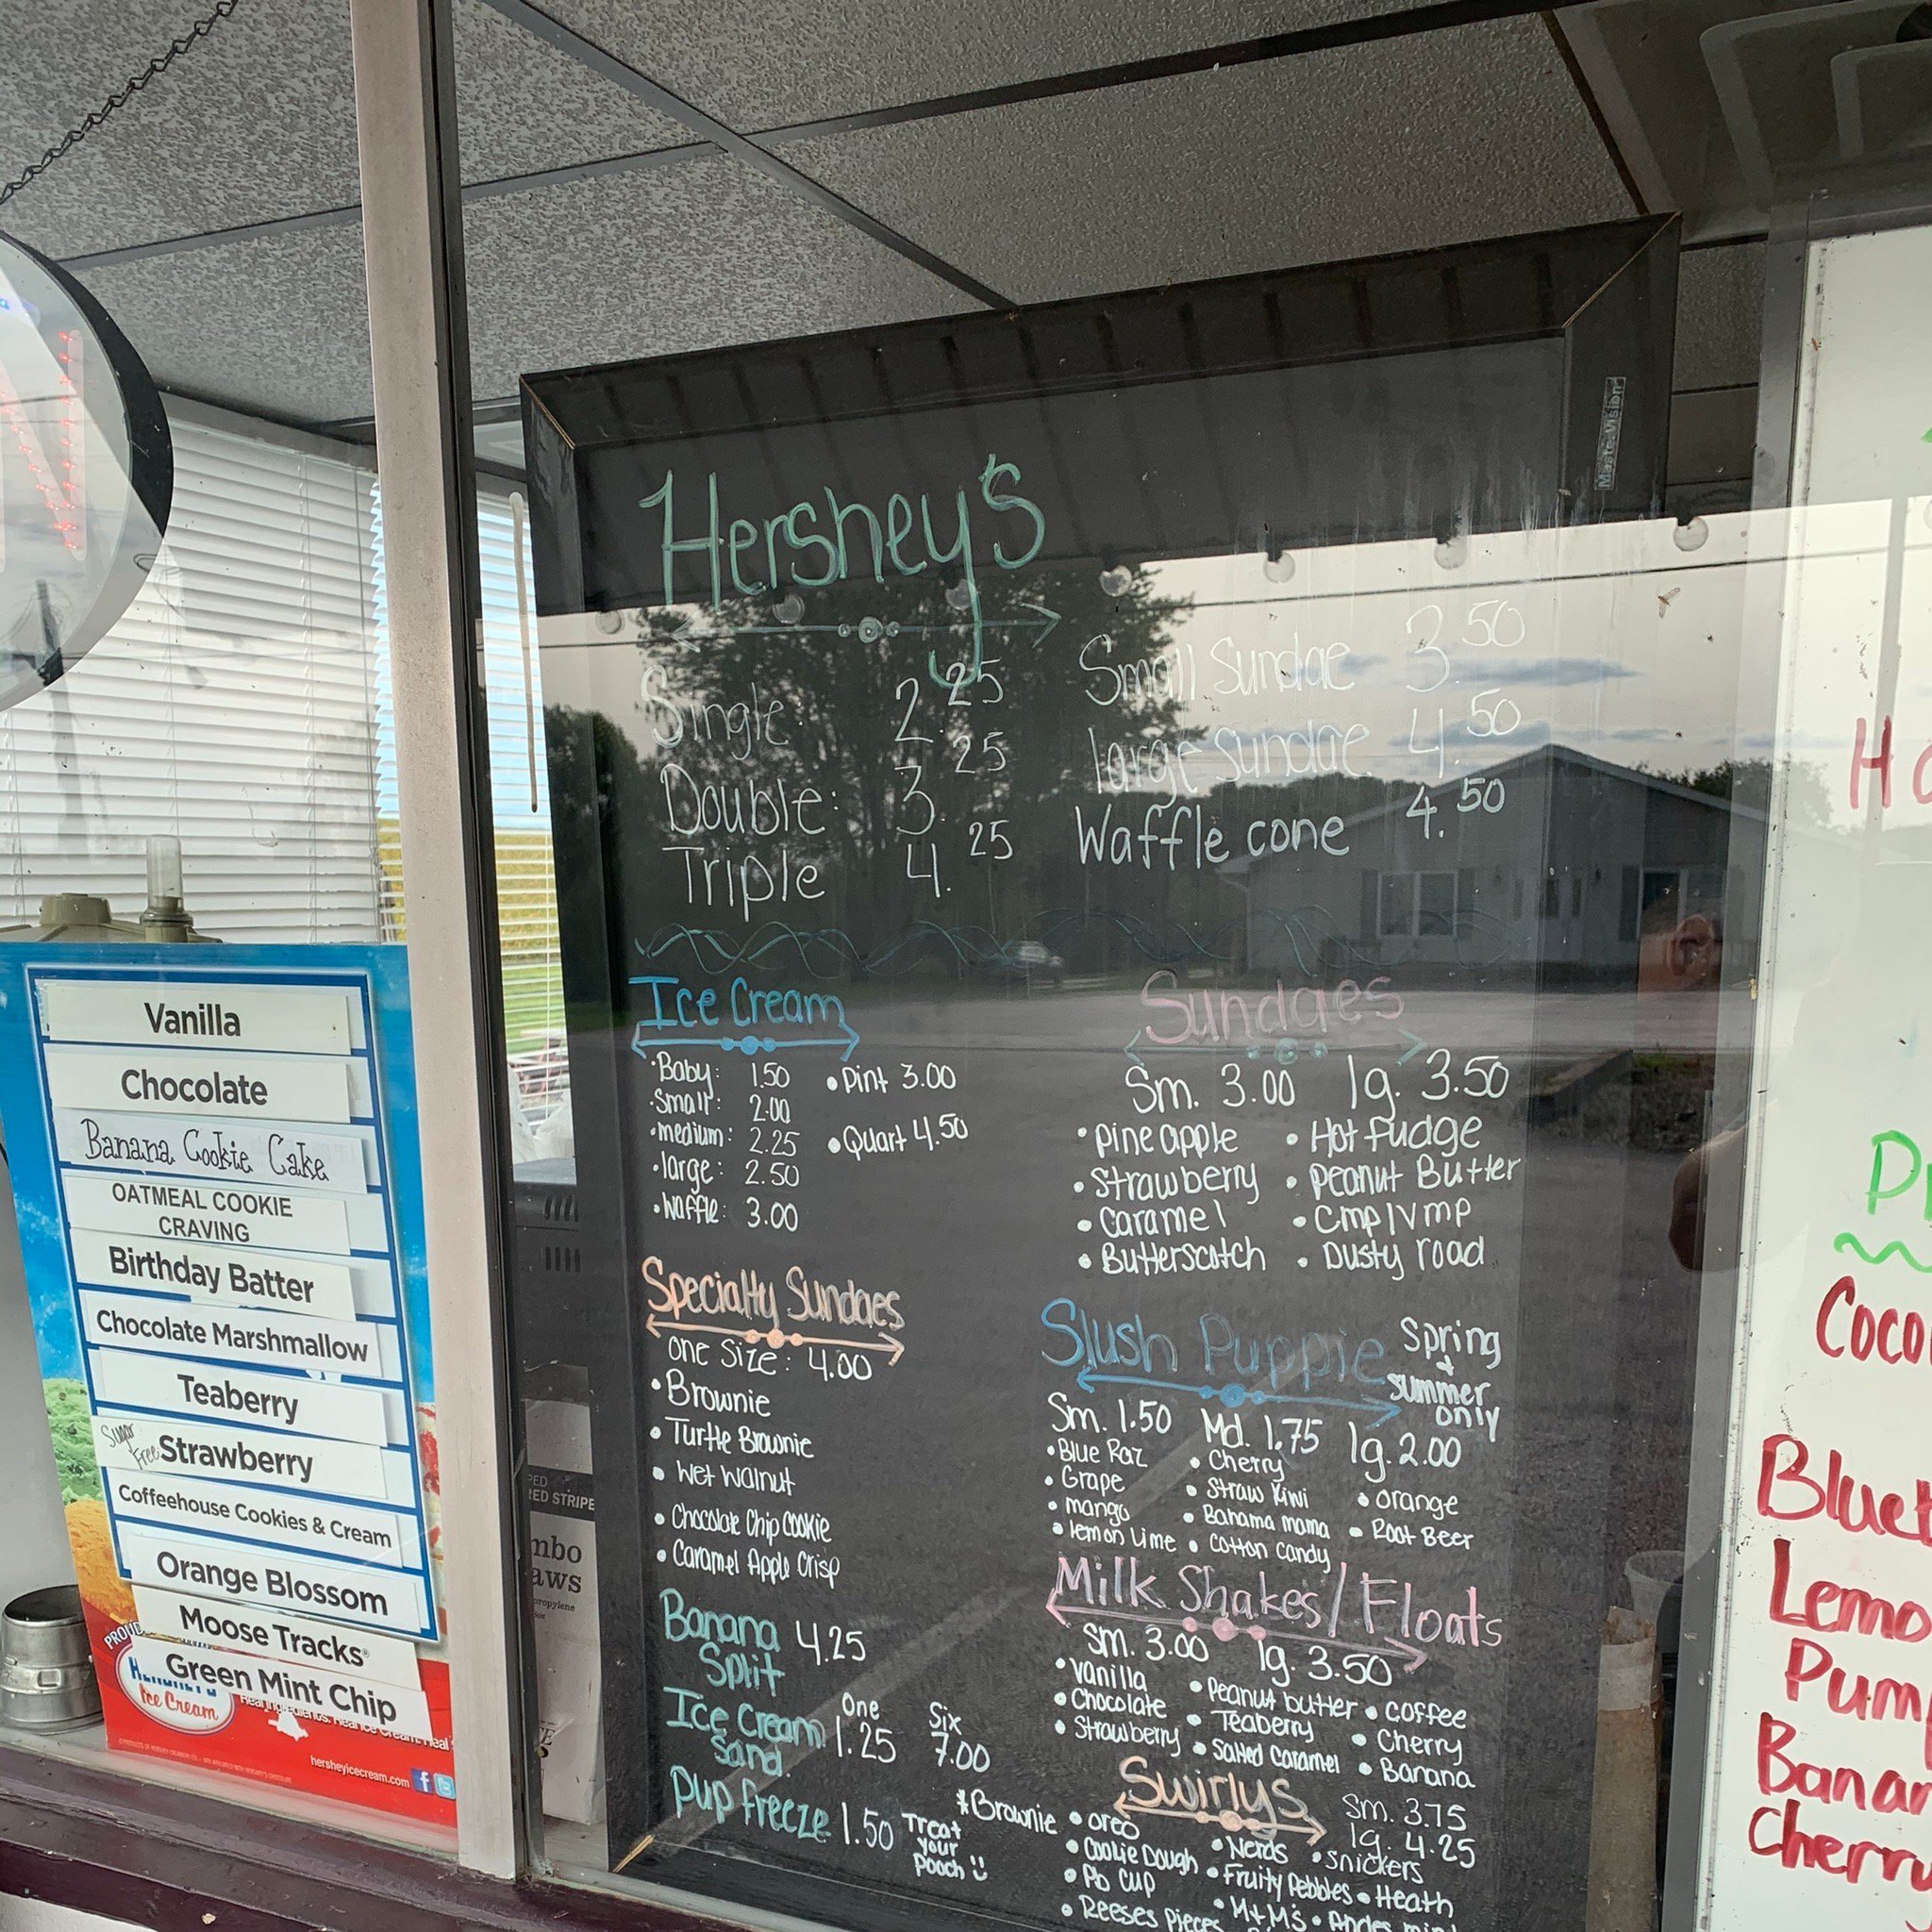 Vanilla
Chocolate
Banana Cookie Cake
OATMEAL COOKIE
CRAVING
Birthday Batter
Chocolate Marshmallow
Teaberry
Sugar Free Strawberry
Coffeehouse Cookies & Cream
Orange Blossom
Moose Tracks
Green Mint Chip
Ice Cream
hersheyicecream.com
MasterVision
Hershey's
Single: 2.25
Double: 3.25
Triple 4.25
Small Sundae 3.50
large sundae 4.50
Waffle cone 4.50
Ice Cream
• Baby: 1.50
• Small: 2.00
• medium: 2.25
• large: 2.50
• Waffle: 3.00
• Pint 3.00
• Quart 4.50
Sundaes
Sm. 3.00 lg. 3.50
• pineapple • Hot fudge
• Strawberry • Peanut Butter
• Caramel • Cmp/vmp
• Butterscotch • Dusty road
Specialty Sundaes
one size: 4.00
• Brownie
• Turtle Brownie
• Wet walnut
• Chocolate Chip Cookie
• Caramel Apple Crisp
Slush Puppie Spring
+
summer
only
Sm. 1.50 Md. 1.75 lg. 2.00
• Blue Raz • Cherry
• Grape • Straw Kiwi • orange
• mango • Bahama mama • Root Beer
• lemon lime • Cotton candy
Banana
Split 4.25
Ice Cream
Sand. One 1.25 Six 7.00
Pup freeze 1.50 Treat
your
Pooch
Milk Shakes/Floats
Sm. 3.00 lg. 3.50
• Vanilla • Peanut butter • coffee
• Chocolate • Teaberry • Cherry
• Strawberry • Salted Caramel • Banana
Swirlys Sm. 3.75
lg. 4.25
*Brownie • oreo • Nerds • snickers
• Cookie Dough • Fruity Pebbles • Heath
• Pb cup • M+M's • Andes mint
• Reeses pieces